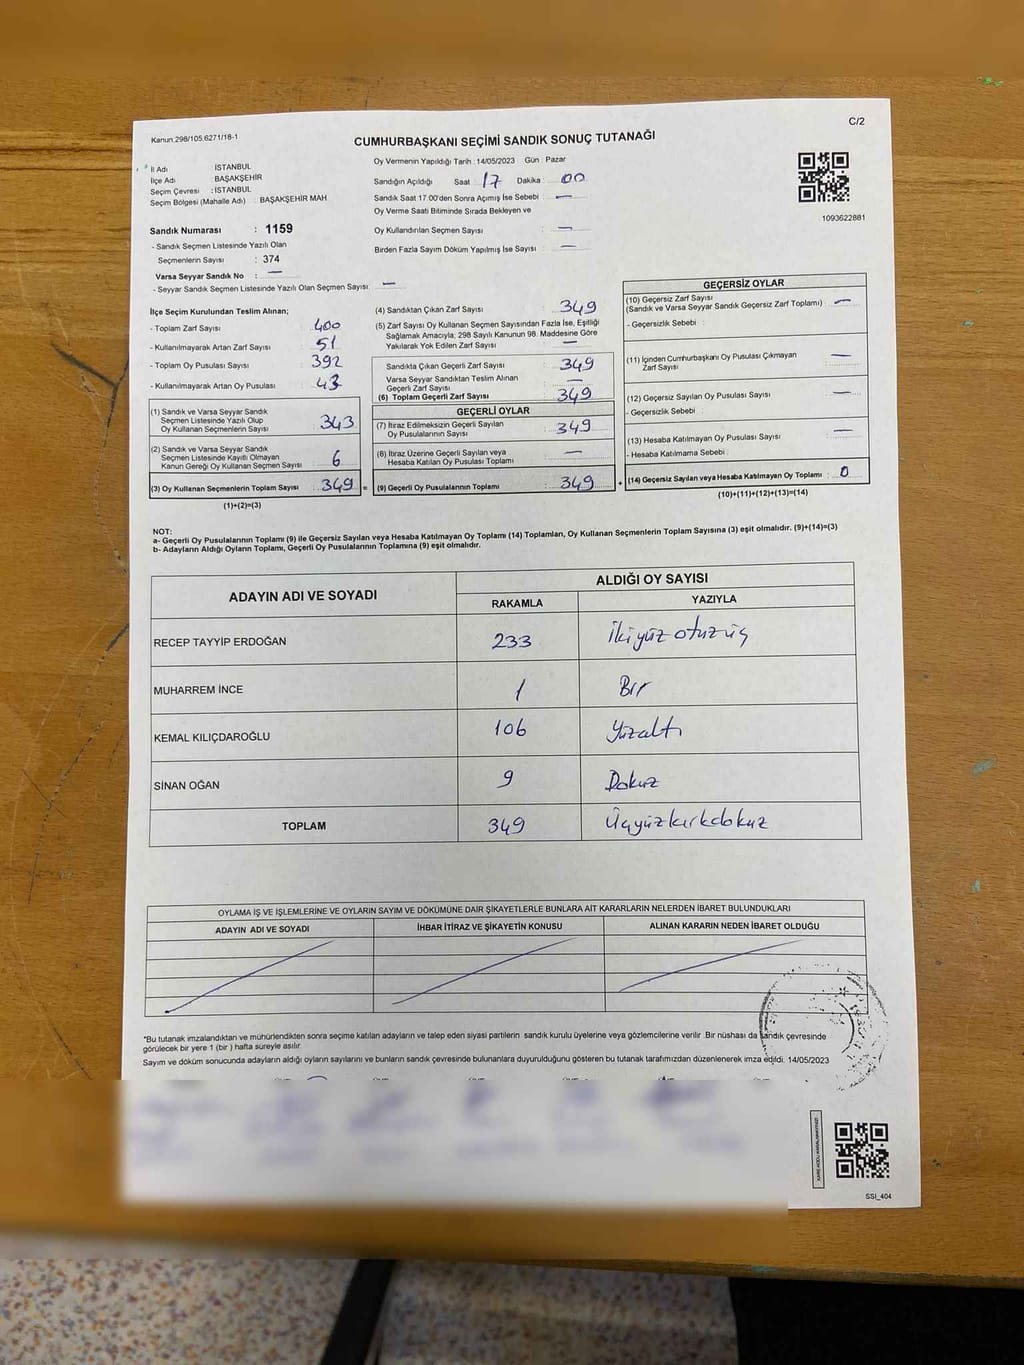 Kanun 298/105.6271/18-1
C/2
CUMHURBAŞKANI SEÇİMİ SANDIK SONUÇ TUTANAĞI
İl Adı İSTANBUL
İlçe Adı BAŞAKŞEHİR
Seçim Çevresi : İSTANBUL
Seçim Bölgesi (Mahalle Adı) : BAŞAKŞEHİR MAH
Sandık Numarası : 1159
- Sandık Seçmen Listesinde Yazılı Olan
Seçmenlerin Sayısı : 374
Varsa Seyyar Sandık No : —
- Seyyar Sandık Seçmen Listesinde Yazılı Olan Seçmen Sayısı: —
Oy Vermenin Yapıldığı Tarih : 14/05/2023 Gün : Pazar
Sandığın Açıldığı Saat : 17 Dakika : 00
Sandık Saat 17.00'den Sonra Açımış İse Sebebi : —
Oy Verme Saati Bitiminde Sırada Bekleyen ve
Oy Kullandırılan Seçmen Sayısı : —
Birden Fazla Sayım Döküm Yapılmış İse Sayısı : —
1093622881
İlçe Seçim Kurulundan Teslim Alınan;
- Toplam Zarf Sayısı : 400
- Kullanılmayarak Artan Zarf Sayısı : 51
- Toplam Oy Pusulası Sayısı : 392
- Kullanılmayarak Artan Oy Pusulası : 43
(1) Sandık ve Varsa Seyyar Sandık
Seçmen Listesinde Yazılı Olup
Oy Kullanan Seçmenlerin Sayısı : 343
(2) Sandık ve Varsa Seyyar Sandık
Seçmen Listesinde Kayıtlı Olmayan
Kanun Gereği Oy Kullanan Seçmen Sayısı : 6
(3) Oy Kullanan Seçmenlerin Toplam Sayısı : 349 =
(1)+(2)=(3)
(4) Sandıktan Çıkan Zarf Sayısı : 349
(5) Zarf Sayısı Oy Kullanan Seçmen Sayısından Fazla İse, Eşitliği
Sağlamak Amacıyla; 298 Sayılı Kanunun 98. Maddesine Göre
Yakılarak Yok Edilen Zarf Sayısı : —
Sandıkta Çıkan Geçerli Zarf Sayısı : 349
Varsa Seyyar Sandıktan Teslim Alınan
Geçerli Zarf Sayısı : —
(6) Toplam Geçerli Zarf Sayısı : 349
GEÇERLİ OYLAR
(7) İtiraz Edilmeksizin Geçerli Sayılan
Oy Pusulalarının Sayısı : 349
(8) İtiraz Üzerine Geçerli Sayılan veya
Hesaba Katılan Oy Pusulası Toplamı : —
(9) Geçerli Oy Pusulalarının Toplamı : 349 +
GEÇERSİZ OYLAR
(10) Geçersiz Zarf Sayısı
(Sandık ve Varsa Seyyar Sandık Geçersiz Zarf Toplamı) : —
- Geçersizlik Sebebi :
(11) İçinden Cumhurbaşkanı Oy Pusulası Çıkmayan
Zarf Sayısı : —
(12) Geçersiz Sayılan Oy Pusulası Sayısı : —
- Geçersizlik Sebebi :
(13) Hesaba Katılmayan Oy Pusulası Sayısı : —
- Hesaba Katılmama Sebebi :
(14) Geçersiz Sayılan veya Hesaba Katılmayan Oy Toplamı : 0
(10)+(11)+(12)+(13)=(14)
NOT:
a- Geçerli Oy Pusulalarının Toplamı (9) ile Geçersiz Sayılan veya Hesaba Katılmayan Oy Toplamı (14) Toplamları, Oy Kullanan Seçmenlerin Toplam Sayısına (3) eşit olmalıdır. (9)+(14)=(3)
b- Adayların Aldığı Oyların Toplamı, Geçerli Oy Pusulalarının Toplamına (9) eşit olmalıdır.
ADAYIN ADI VE SOYADI ALDIĞI OY SAYISI
RAKAMLA YAZIYLA
RECEP TAYYİP ERDOĞAN 233 İkiyüz otuz üç
MUHARREM İNCE 1 Bir
KEMAL KILIÇDAROĞLU 106 Yüzaltı
SİNAN OĞAN 9 Dokuz
TOPLAM 349 Üçyüzkırkdokuz
OYLAMA İŞ VE İŞLEMLERİNE VE OYLARIN SAYIM VE DÖKÜMÜNE DAİR ŞİKAYETLERLE BUNLARA AİT KARARLARIN NELERDEN İBARET BULUNDUKLARI
ADAYIN ADI VE SOYADI İHBAR İTİRAZ VE ŞİKAYETİN KONUSU ALINAN KARARIN NEDEN İBARET OLDUĞU
*Bu tutanak imzalandıktan ve mühürlendikten sonra seçime katılan adayların ve talep eden siyasi partilerin sandık kurulu üyelerine veya gözlemcilerine verilir Bir nüshası da sandık çevresinde
görülecek bir yere 1 (bir) hafta süreyle asılır.
Sayım ve döküm sonucunda adayların aldığı oyların sayılarını ve bunların sandık çevresinde bulunanlara duyurulduğunu gösteren bu tutanak tarafımızdan düzenlenerek imza edildi. 14/05/2023
SSI_404